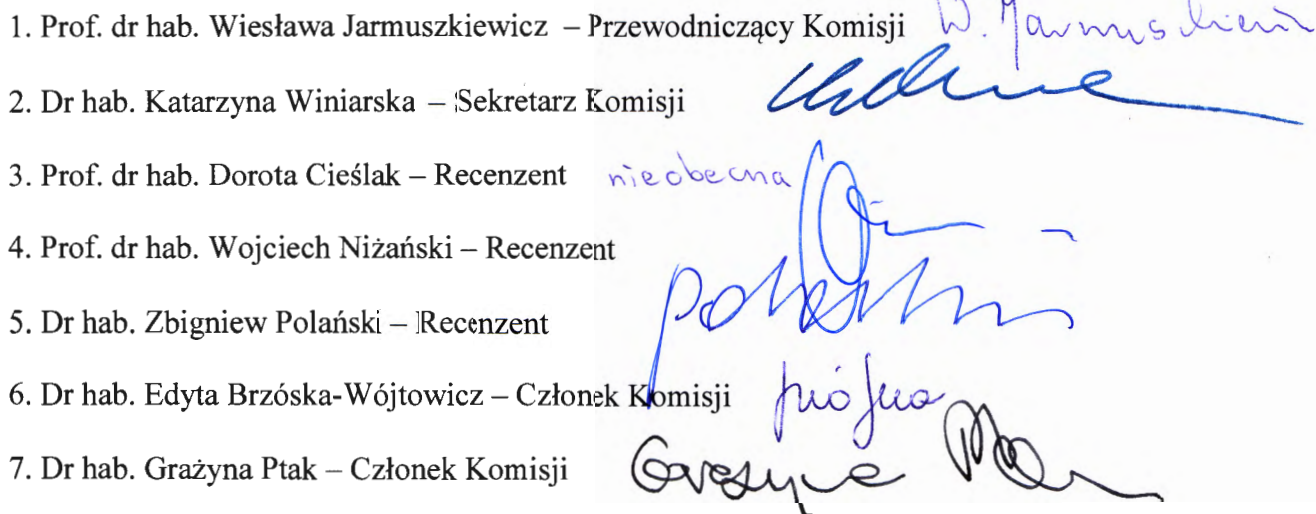 1. Prof. dr hab. Wiesława Jarmuszkiewicz – Przewodniczący Komisji W. Jarmuszkiewicz
2. Dr hab. Katarzyna Winiarska – Sekretarz Komisji
3. Prof. dr hab. Dorota Cieślak – Recenzent nieobecna
4. Prof. dr hab. Wojciech Niżański – Recenzent
5. Dr hab. Zbigniew Polański – Recenzent
6. Dr hab. Edyta Brzóska-Wójtowicz – Członek Komisji
7. Dr hab. Grażyna Ptak – Członek Komisji Grażyna